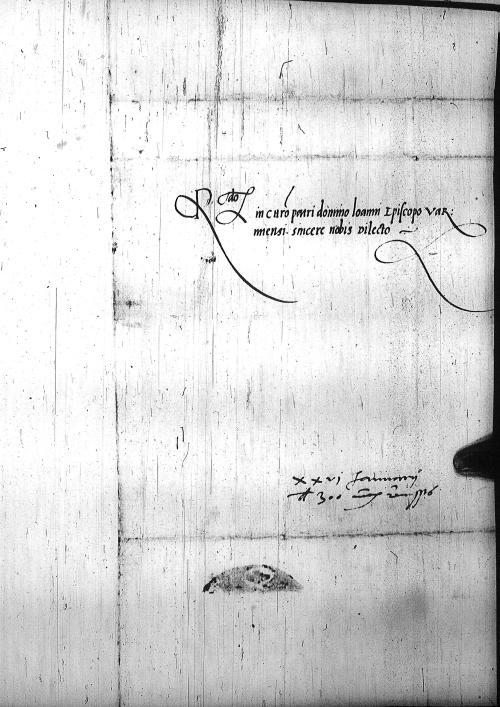 R. do in cħro patri domino Ioanni Episcopo Var:
miensi sincere nobis Dilecto
xxvi Januarij
300